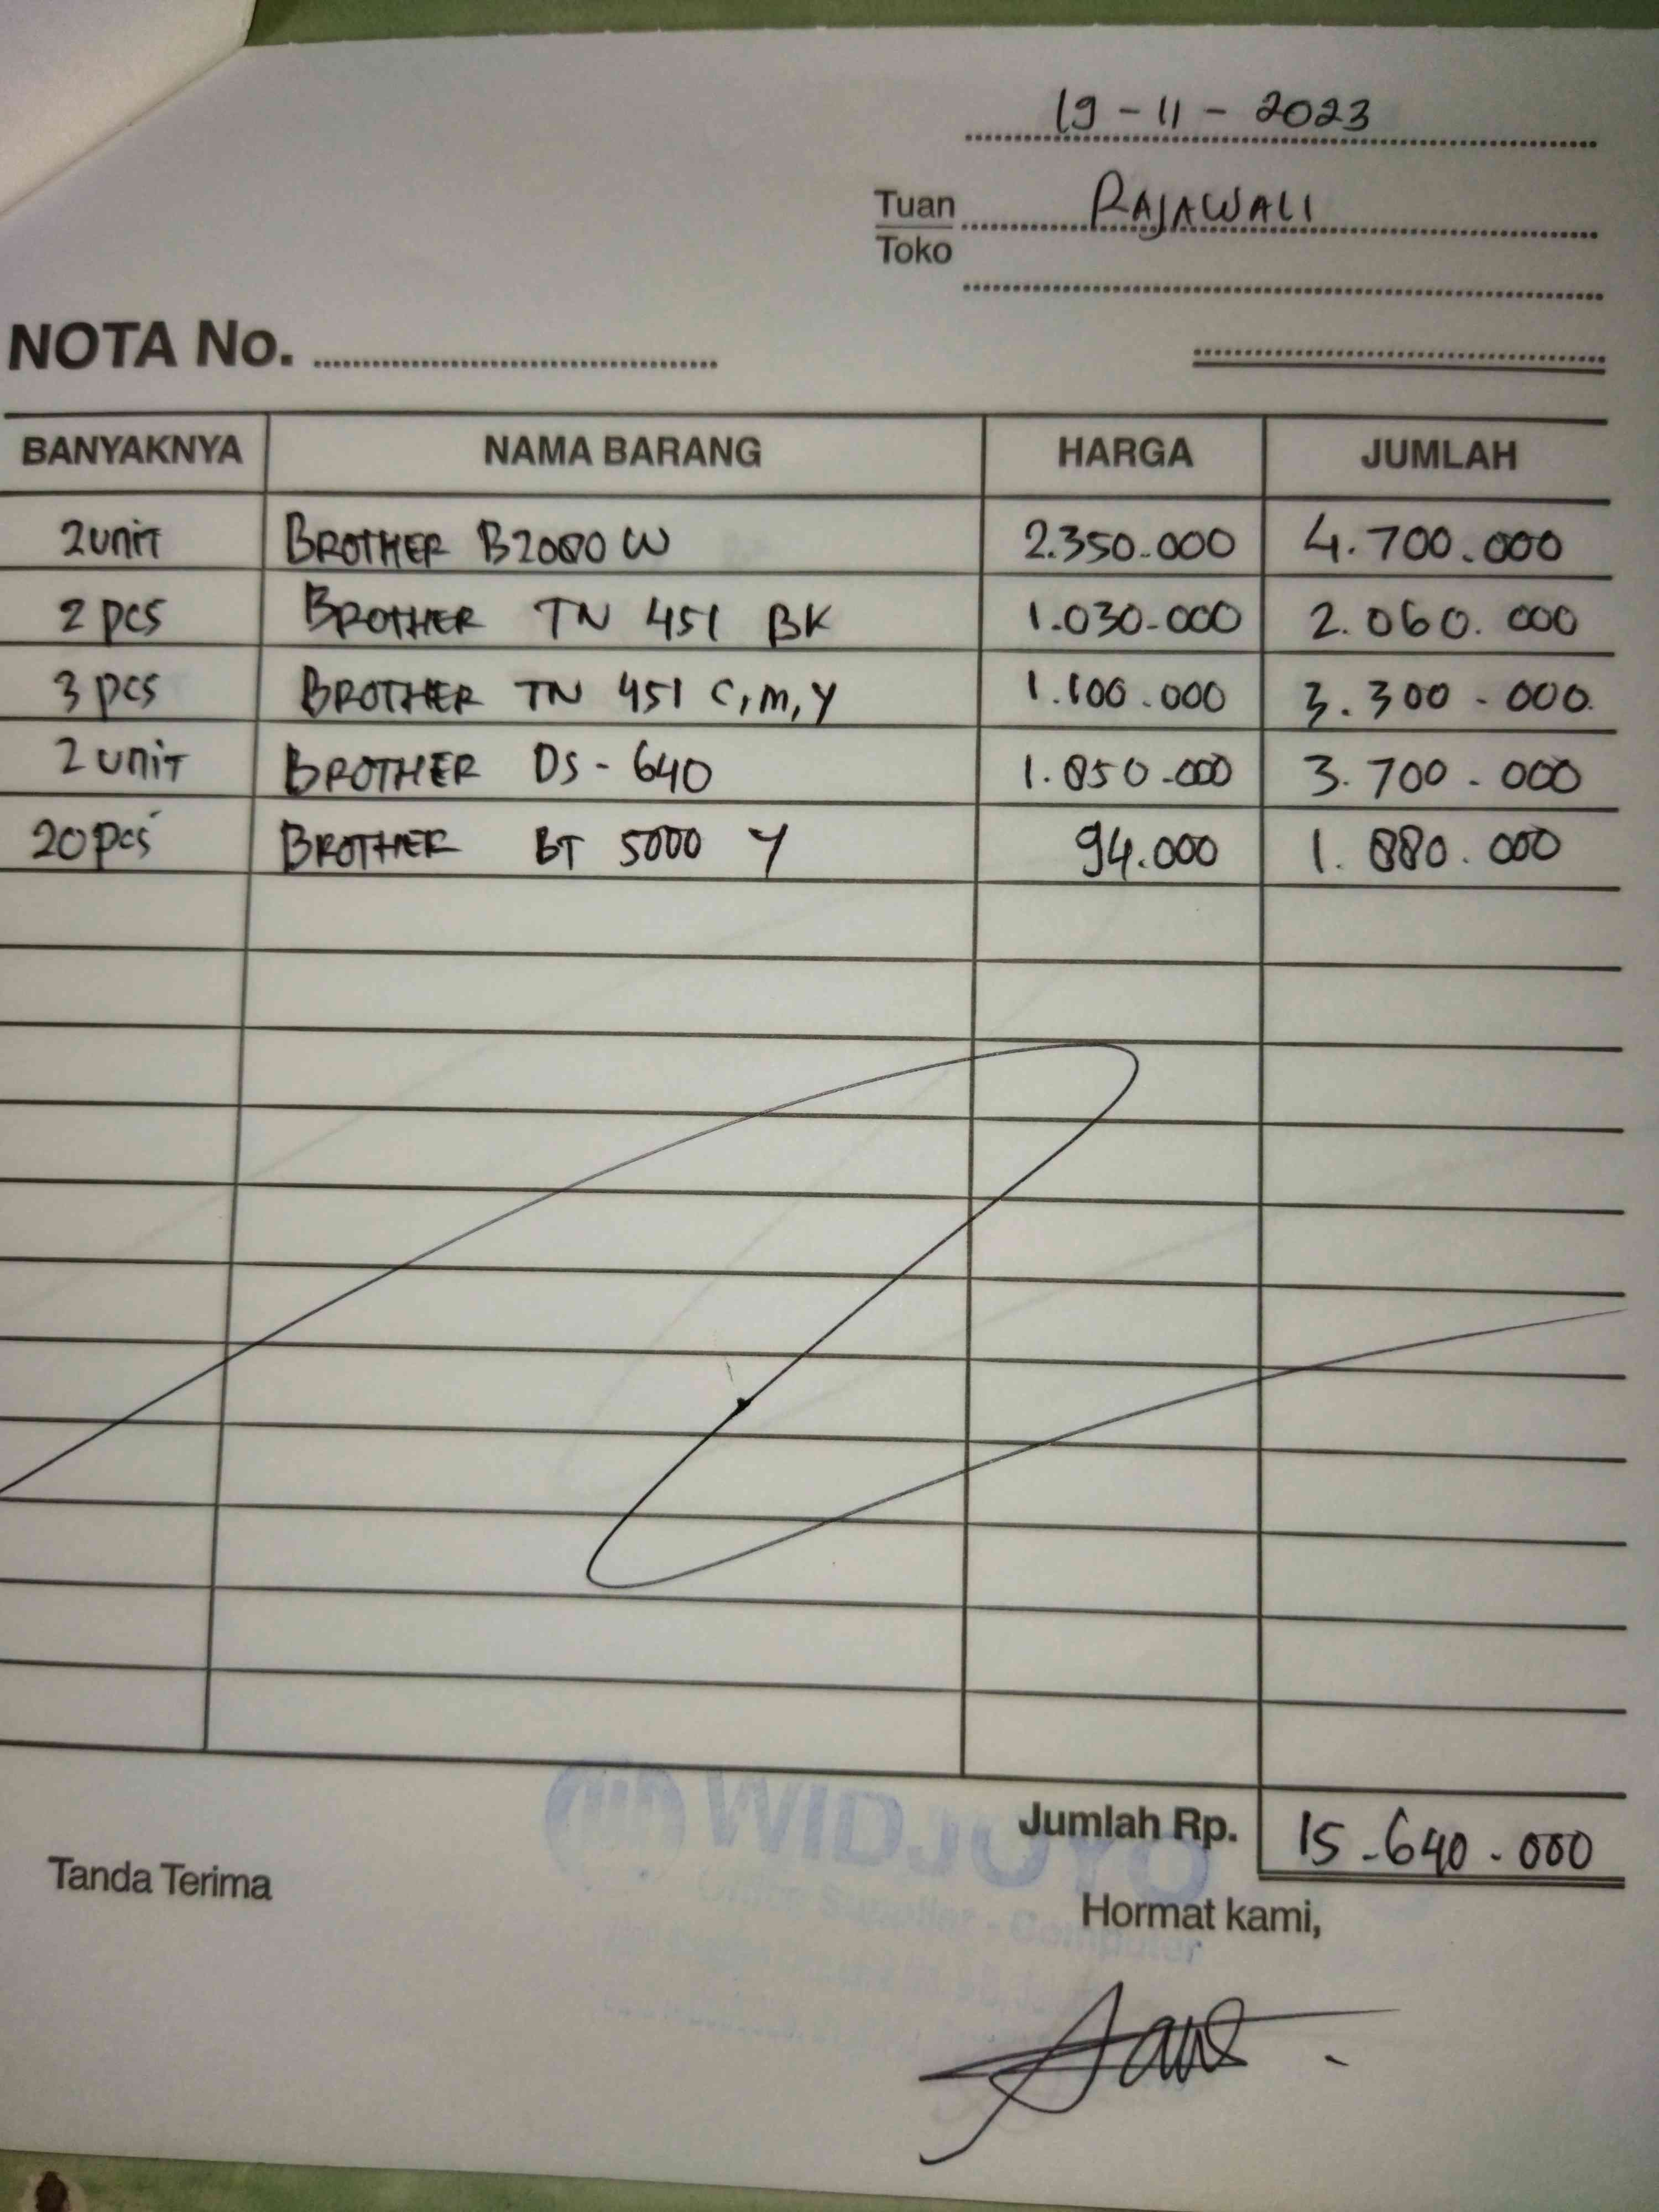 19 - 11 - 2023
Tuan RAJAWALI
Toko
NOTA No.
BANYAKNYA NAMA BARANG HARGA JUMLAH
2 unit BROTHER B2080 W 2.350.000 4.700.000
2 pcs BROTHER TN 451 BK 1.030.000 2.060.000
3 pcs BROTHER TN 451 C, M, Y 1.100.000 3.300.000
2 unit BROTHER DS - 640 1.850.000 3.700.000
20 pcs BROTHER BT 5000 Y 94.000 1.880.000
Jumlah Rp. 15.640.000
WIDJOYO
Tanda Terima
Office Supplier - Computer
Hormat kami,